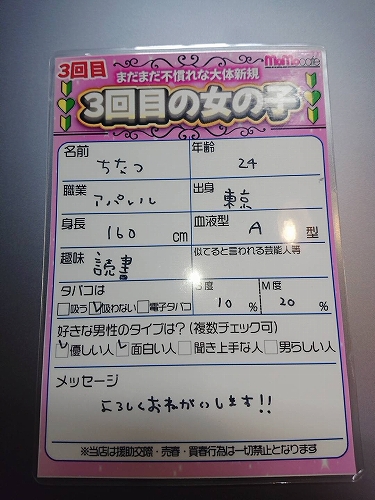 MoMocafe
3回目 まだまだ不慣れな大体新規
3回目の女の子
名前 ちなつ 年齢 24
職業 アパレル 出身 東京
身長 160 cm 血液型 A 型
趣味 読書 似てると言われる芸能人等
タバコは S度 M度
吸う 吸わない 電子タバコ 10 % 20 %
好きな男性のタイプは?(複数チェック可)
優しい人 面白い人 聞き上手な人 男らしい人
メッセージ
よろしくおねがいします!!
※当店は援助交際・売春・買春行為は一切禁止となります